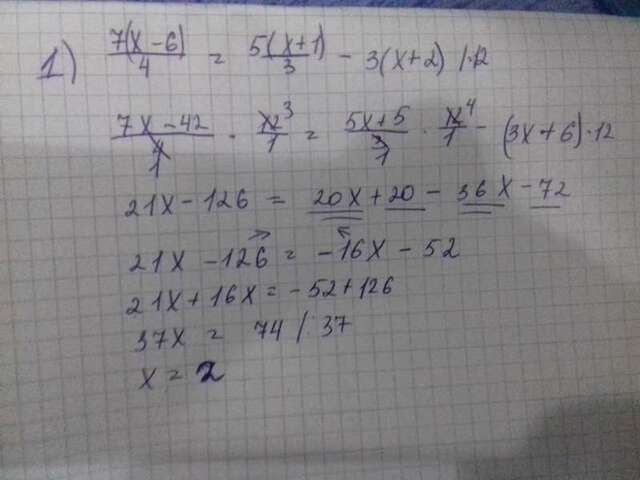 1) 7(x-6)/4 = 5(x+1)/3 - 3(x+2) /·12
7x-42/4 · 12/1 3 = 5x+5/3 · 12/1 4 - (3x+6)·12
21x-126 = 20x+20-36x-72
21x-126 = -16x-52
21x+16x=-52+126
37x = 74 /:37
x = 2